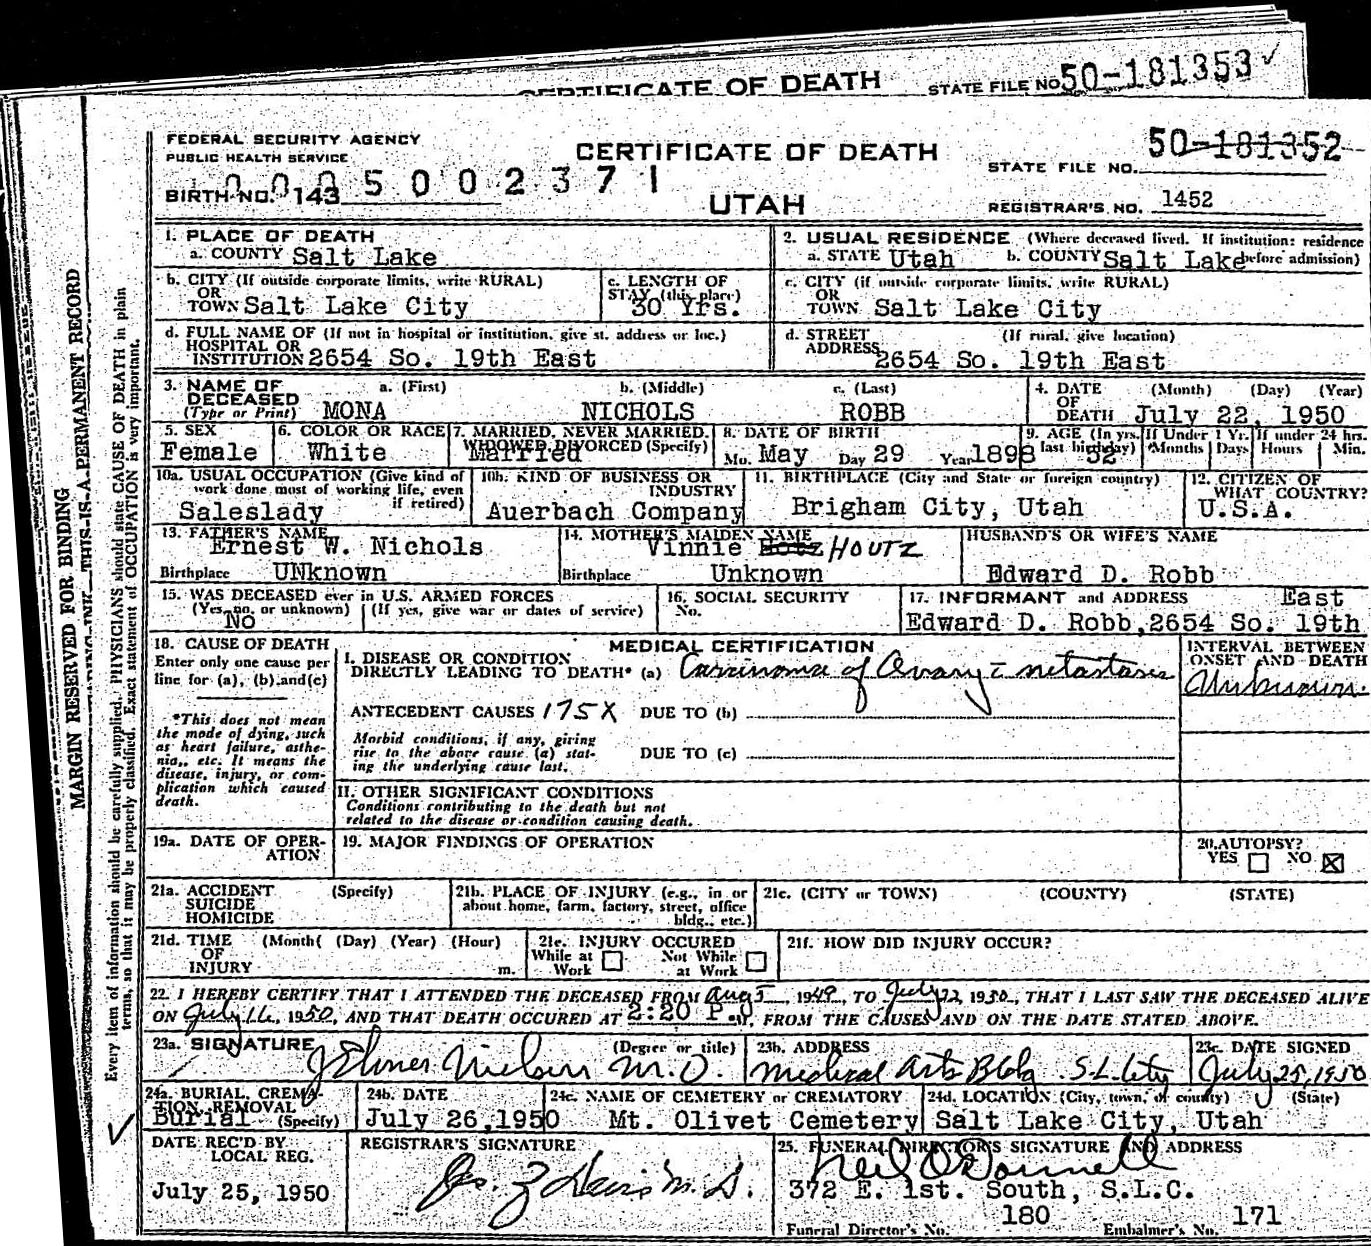 CERTIFICATE OF DEATH STATE FILE NO 50-181353 ✓
FEDERAL SECURITY AGENCY
PUBLIC HEALTH SERVICE
CERTIFICATE OF DEATH
UTAH
STATE FILE NO. 50-181352
BIRTH NO. 143
5 0 0 2 3 7 1
REGISTRAR'S NO. 1452
1. PLACE OF DEATH
a. COUNTY Salt Lake
2. USUAL RESIDENCE (Where deceased lived. If institution: residence before admission)
a. STATE Utah b. COUNTY Salt Lake
b. CITY (If outside corporate limits, write RURAL)
OR
TOWN Salt Lake City
c. LENGTH OF
STAY (this place)
30 Yrs.
c. CITY (if outside corporate limits, write RURAL)
OR
TOWN Salt Lake City
d. FULL NAME OF (If not in hospital or institution, give st. address or loc.)
HOSPITAL OR
INSTITUTION 2654 So. 19th East
d. STREET (If rural, give location)
ADDRESS 2654 So. 19th East
3. NAME OF a. (First) b. (Middle) c. (Last)
DECEASED
(Type or Print) MONA NICHOLS ROBB
4. DATE (Month) (Day) (Year)
OF
DEATH July 22, 1950
5. SEX
Female
6. COLOR OR RACE
White
7. MARRIED, NEVER MARRIED,
WIDOWED DIVORCED (Specify)
Married
8. DATE OF BIRTH
Mo. May Day 29 Year 1898
9. AGE (In yrs. last birthday)
52
If Under 1 Yr.
Months Days
If under 24 hrs.
Hours Min.
10a. USUAL OCCUPATION (Give kind of
work done most of working life, even
if retired)
Saleslady
10b. KIND OF BUSINESS OR
INDUSTRY
Auerbach Company
11. BIRTHPLACE (City and State or foreign country)
Brigham City, Utah
12. CITIZEN OF
WHAT COUNTRY?
U.S.A.
13. FATHER'S NAME
Ernest W. Nichols
Birthplace UNknown
14. MOTHER'S MAIDEN NAME
Vinnie Hotz HOUTZ
Birthplace Unknown
HUSBAND'S OR WIFE'S NAME
Edward D. Robb
15. WAS DECEASED ever in U.S. ARMED FORCES
(Yes, no, or unknown) (If yes, give war or dates of service)
No
16. SOCIAL SECURITY
No.
17. INFORMANT and ADDRESS East
Edward D. Robb, 2654 So. 19th
18. CAUSE OF DEATH
Enter only one cause per
line for (a), (b) and (c)
*This does not mean
the mode of dying, such
as heart failure, asthe-
nia,, etc. It means the
disease, injury, or com-
plication which caused
death.
MEDICAL CERTIFICATION
I. DISEASE OR CONDITION
DIRECTLY LEADING TO DEATH* (a) Carcinoma of Ovary c̄ metastasis
ANTECEDENT CAUSES 175X DUE TO (b)
Morbid conditions, if any, giving
rise to the above cause (a) stat-
ing the underlying cause last.
DUE TO (c)
II. OTHER SIGNIFICANT CONDITIONS
Conditions contributing to the death but not
related to the disease or condition causing death.
INTERVAL BETWEEN
ONSET AND DEATH
19a. DATE OF OPER-
ATION
19. MAJOR FINDINGS OF OPERATION
20. AUTOPSY?
YES ☐ NO ☒
21a. ACCIDENT (Specify)
SUICIDE
HOMICIDE
21b. PLACE OF INJURY (e.g., in or
about home, farm, factory, street, office
bldg., etc.)
21c. (CITY or TOWN) (COUNTY) (STATE)
21d. TIME (Month( (Day) (Year) (Hour)
OF
INJURY m.
21e. INJURY OCCURED
While at Work ☐ Not While at Work ☐
21f. HOW DID INJURY OCCUR?
22. I HEREBY CERTIFY THAT I ATTENDED THE DECEASED FROM Aug 5, 1949, TO July 22 1950, THAT I LAST SAW THE DECEASED ALIVE
ON July 16, 1950, AND THAT DEATH OCCURED AT 2:20 P.M. FROM THE CAUSES AND ON THE DATE STATED ABOVE.
23a. SIGNATURE (Degree or title)
J Elmer Nielsen M.D.
23b. ADDRESS
Medical Arts Bldg. S.L. City
23c. DATE SIGNED
July 25, 1950
24a. BURIAL, CREMA-
TION REMOVAL
Burial (Specify)
24b. DATE
July 26, 1950
24c. NAME OF CEMETERY or CREMATORY
Mt. Olivet Cemetery
24d. LOCATION (City, town, or county) (State)
Salt Lake City, Utah
DATE REC'D BY
LOCAL REG.
July 25, 1950
REGISTRAR'S SIGNATURE
25. FUNERAL DIRECTOR'S SIGNATURE AND ADDRESS
Neil O'Donnell
372 E. 1st. South, S.L.C.
Funeral Director's No. 180 Embalmer's No. 171
MARGIN RESERVED FOR BINDING
THIS IS A PERMANENT RECORD
Every item of information should be carefully supplied. PHYSICIANS should state CAUSE OF DEATH in plain
terms, so that it may be properly classified. Exact statement of OCCUPATION is very important.